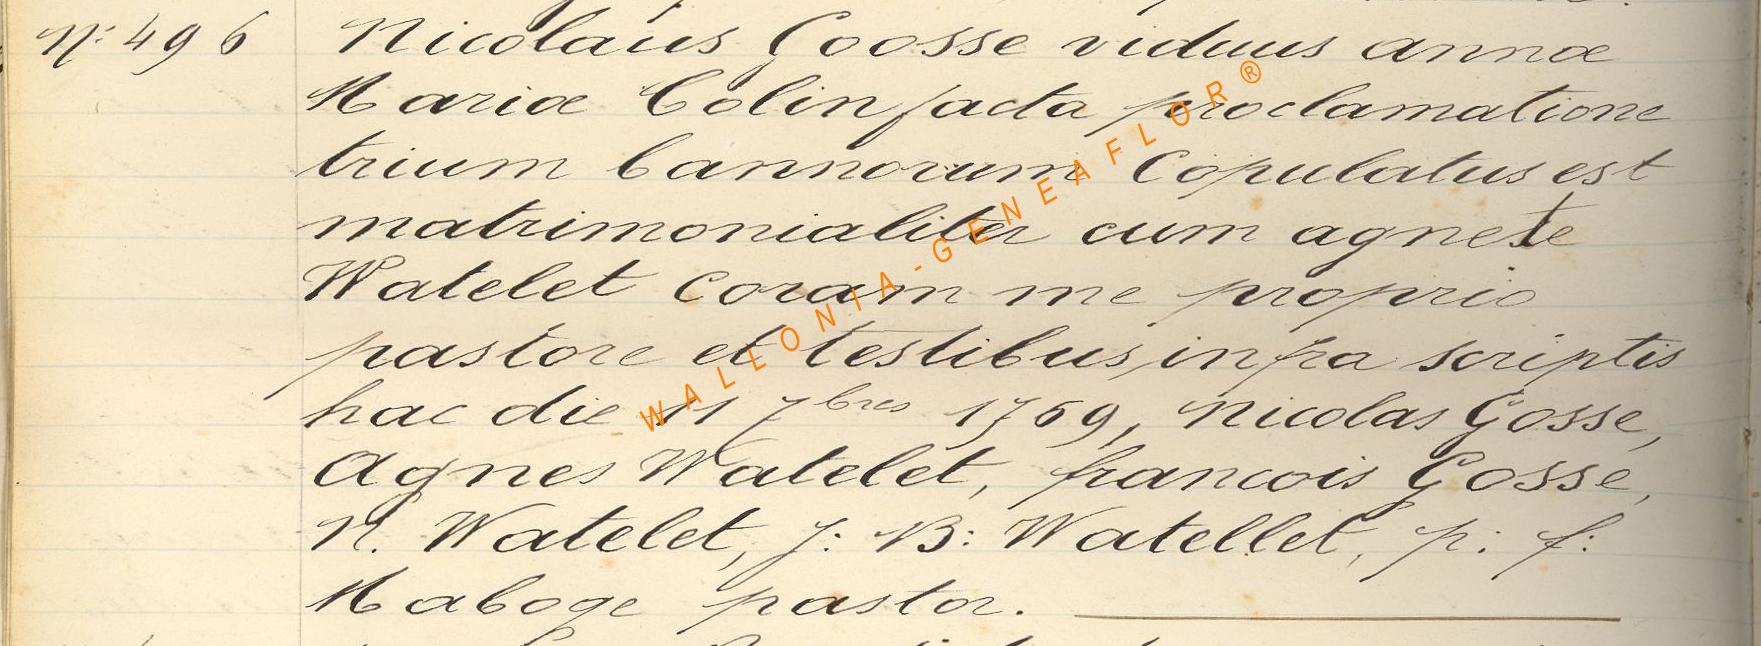 N: 496 Nicolaus Goosse viduus annæ
Mariæ Colin facta proclamatione
trium bannorum Copulatus est
matrimonialiter cum agnete
Watelet coram me proprio
pastore et testibus infra scriptis
hac die 11 7bres 1769, Nicolas Gosse,
Agnes Watelet, francois Gosse,
N. Watelet, J: B: Watellet, p: f:
Maboge pastor.
WALLONIA-GENEAFLOR®